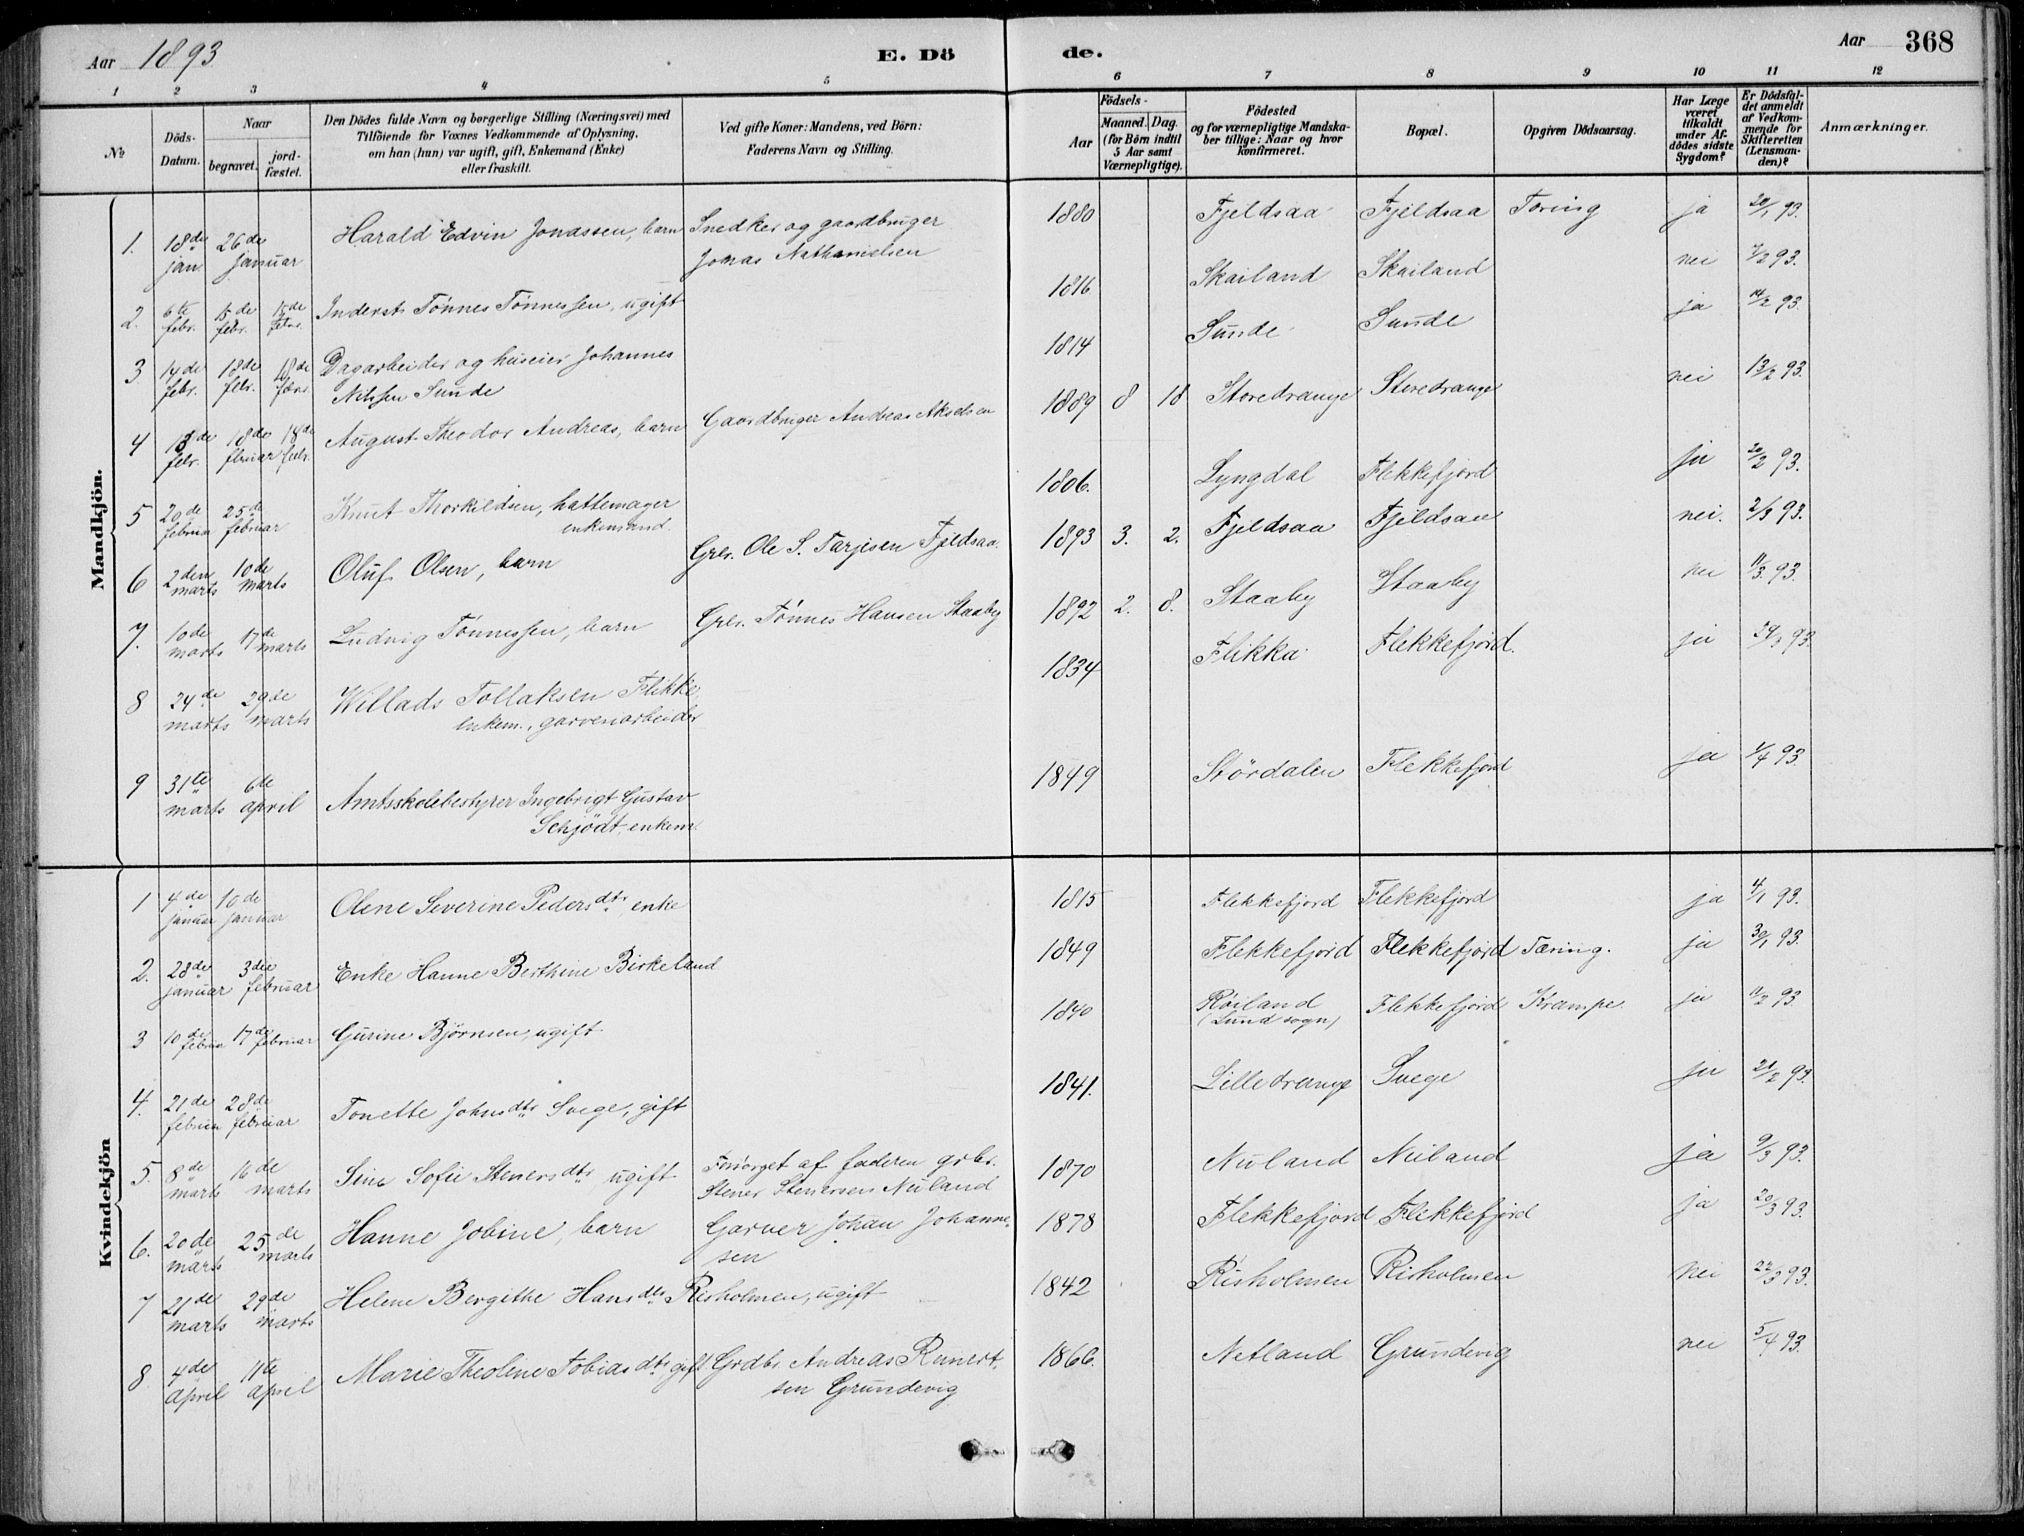 Aar 1893 E. Dö de. Aar 368
1 2 3 4 5 6 7 8 9 10 11 12
№
Döds-Datum.
Naar
begravet.
jord-fæstet.
Den Dödes fulde Navn og borgerlige Stilling (Næringsvei) med
Tilföiende for Voxnes Vedkommende af Oplysning,
om han (hun) var ugift, gift, Enkemand (Enke)
eller fraskilt.
Ved gifte Koner: Mandens, ved Börn:
Faderens Navn og Stilling.
Aar
Födsels-
Maaned. Dag.
(for Börn indtil
5 Aar samt
Værnepligtige).
Födested
og for værnepligtige Mandska-
ber tillige: Naar og hvor
konfirmeret.
Bopæl.
Opgiven Dödsaarsag.
Har Læge
været
tilkaldt
under Af-
dödes sidste
Sygdom?
Er Dödsfal-
det anmeldt
af Vedkom-
mende for
Skifteretten
(Lensman-
den)?
Anmærkninger.
Mandkjön.
1. 18de jan. 26de januar Harald Edvin Jonassen, barn Snedker og gaardbruger Jonas Nathanielsen 1880 Fjeldsaa Fjeldsaa Tæring ja 20/1 93.
2. 6te febr. 15de febr. 15de febr. Inderst Tönnes Tönnessen, ugift 1816 Skailand Skailand nei 7/2 93.
3 14de febr. 18de febr. 18de febr. Dagarbeider og huseier Johannes
Nilssen Sunde 1814 Sunde Sunde ja 14/2 93.
4 18de febr. 18de februar 18de febr. August Theodor Andreas, barn Gaardbruger Andreas Akselsen 1889 8 18 Storedrange Storedrange nei 13/2 93.
5 20de februar 25de februar Knut Thorkildsen, hattemager
enkemand. 1806. Lyngdal Flekkefjord ja 20/2 93.
6 2den marts 10de marts Oluf Olsen, barn Gbr. Ole S. Tarjesen Fjeldsaa. 1893 3. 2. Fjeldsaa Fjeldsaa nei. 2/3 93.
7. 10de marts 17de marts Ludvig Tönnessen, barn Gbr. Tönnes Hansen Staaby 1892 2. 8. Staaby Staaby nei 11/3 93.
8 24de marts 29de marts Willads Tollaksen Flikke,
enkem., garveriarbeider 1834 Flikka Flekkefjord. ja 93.
9 31te marts 6te april Amtsskolebestyrer Ingebrigt Gustav
Schjödt, enkem. 1849 Stördalen Flekkefjord ja 1/4 93.
Kvindekjön
1 4de januar 10de januar Olene Severine Pedersdtr, enke 1815 Flekkefjord Flekkefjord ja 4/1 93.
2. 28de januar 3die februar Enke Hanne Berthine Birkeland 1849 Flekkefjord Flekkefjord Tæring. ja 30/1 93.
3 10de februar 17de februar Gurine Björnsen, ugift 1840 Röiland
(Lund sogn) Flekkefjord Krampe. ja 11/2 93
4. 21de februar 28de februar Tonette Johnsdtr Svege, gift 1841. Lilledrange Svege ja 21/2 93.
5. 8de marts 16de marts Sine Sofie Stenersdtr, ugift Forsörget af faderen grbr.
Stener Stenersen Nuland 1870 Nuland Nuland ja 9/3 93.
6. 20de marts 25de marts Hanne Jobine, barn Garver Johan Johanne-
sen 1878 Flekkefjord Flekkefjord ja 20/3 93.
7 21de marts 29de marts Helene Bergithe Hansdtr Risholmen, ugift 1842 Risholmen Risholmen nei 22/3 93.
8 4de April 11te april Marie Theolene Tobiasdtr gift Grdbr. Andreas Reinert-
sen Grundevig 1866. Netland Grundevig nei 5/4 93.